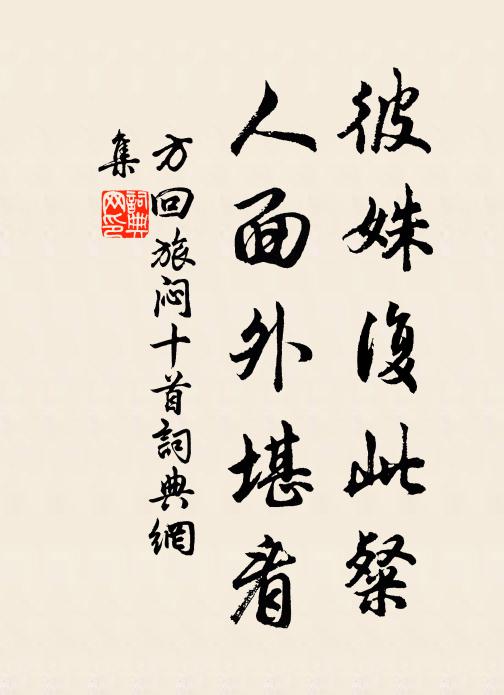 彼姝復此粲
人面外堪看
方回旅闷十首詞典網
集
詞典網印